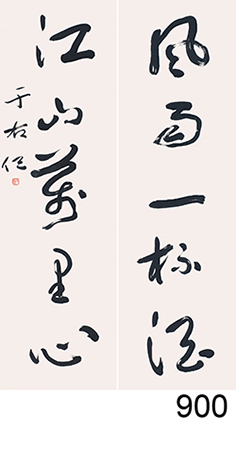 風雨一杯酒
江山萬里心
于右任
900